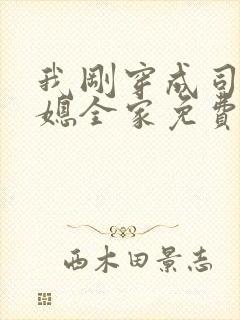 我剛穿成司
媳全家免費
西木田景志